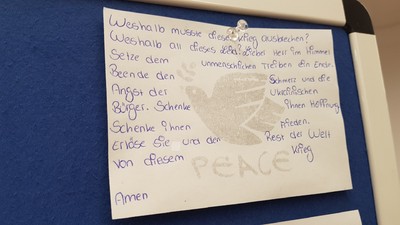 Weshalb musste dieser Krieg ausbrechen?
Weshalb all dieses Leid? Lieber Herr im Himmel
Setze dem unmenschlichen Treiben ein Ende.
Beende den Schmerz und die
Angst der Ukrainischen
Bürger. Schenke ihnen Hoffnung
Schenke ihnen Frieden.
Erlöse sie und den Rest der Welt
von diesem Krieg
PEACE
Amen